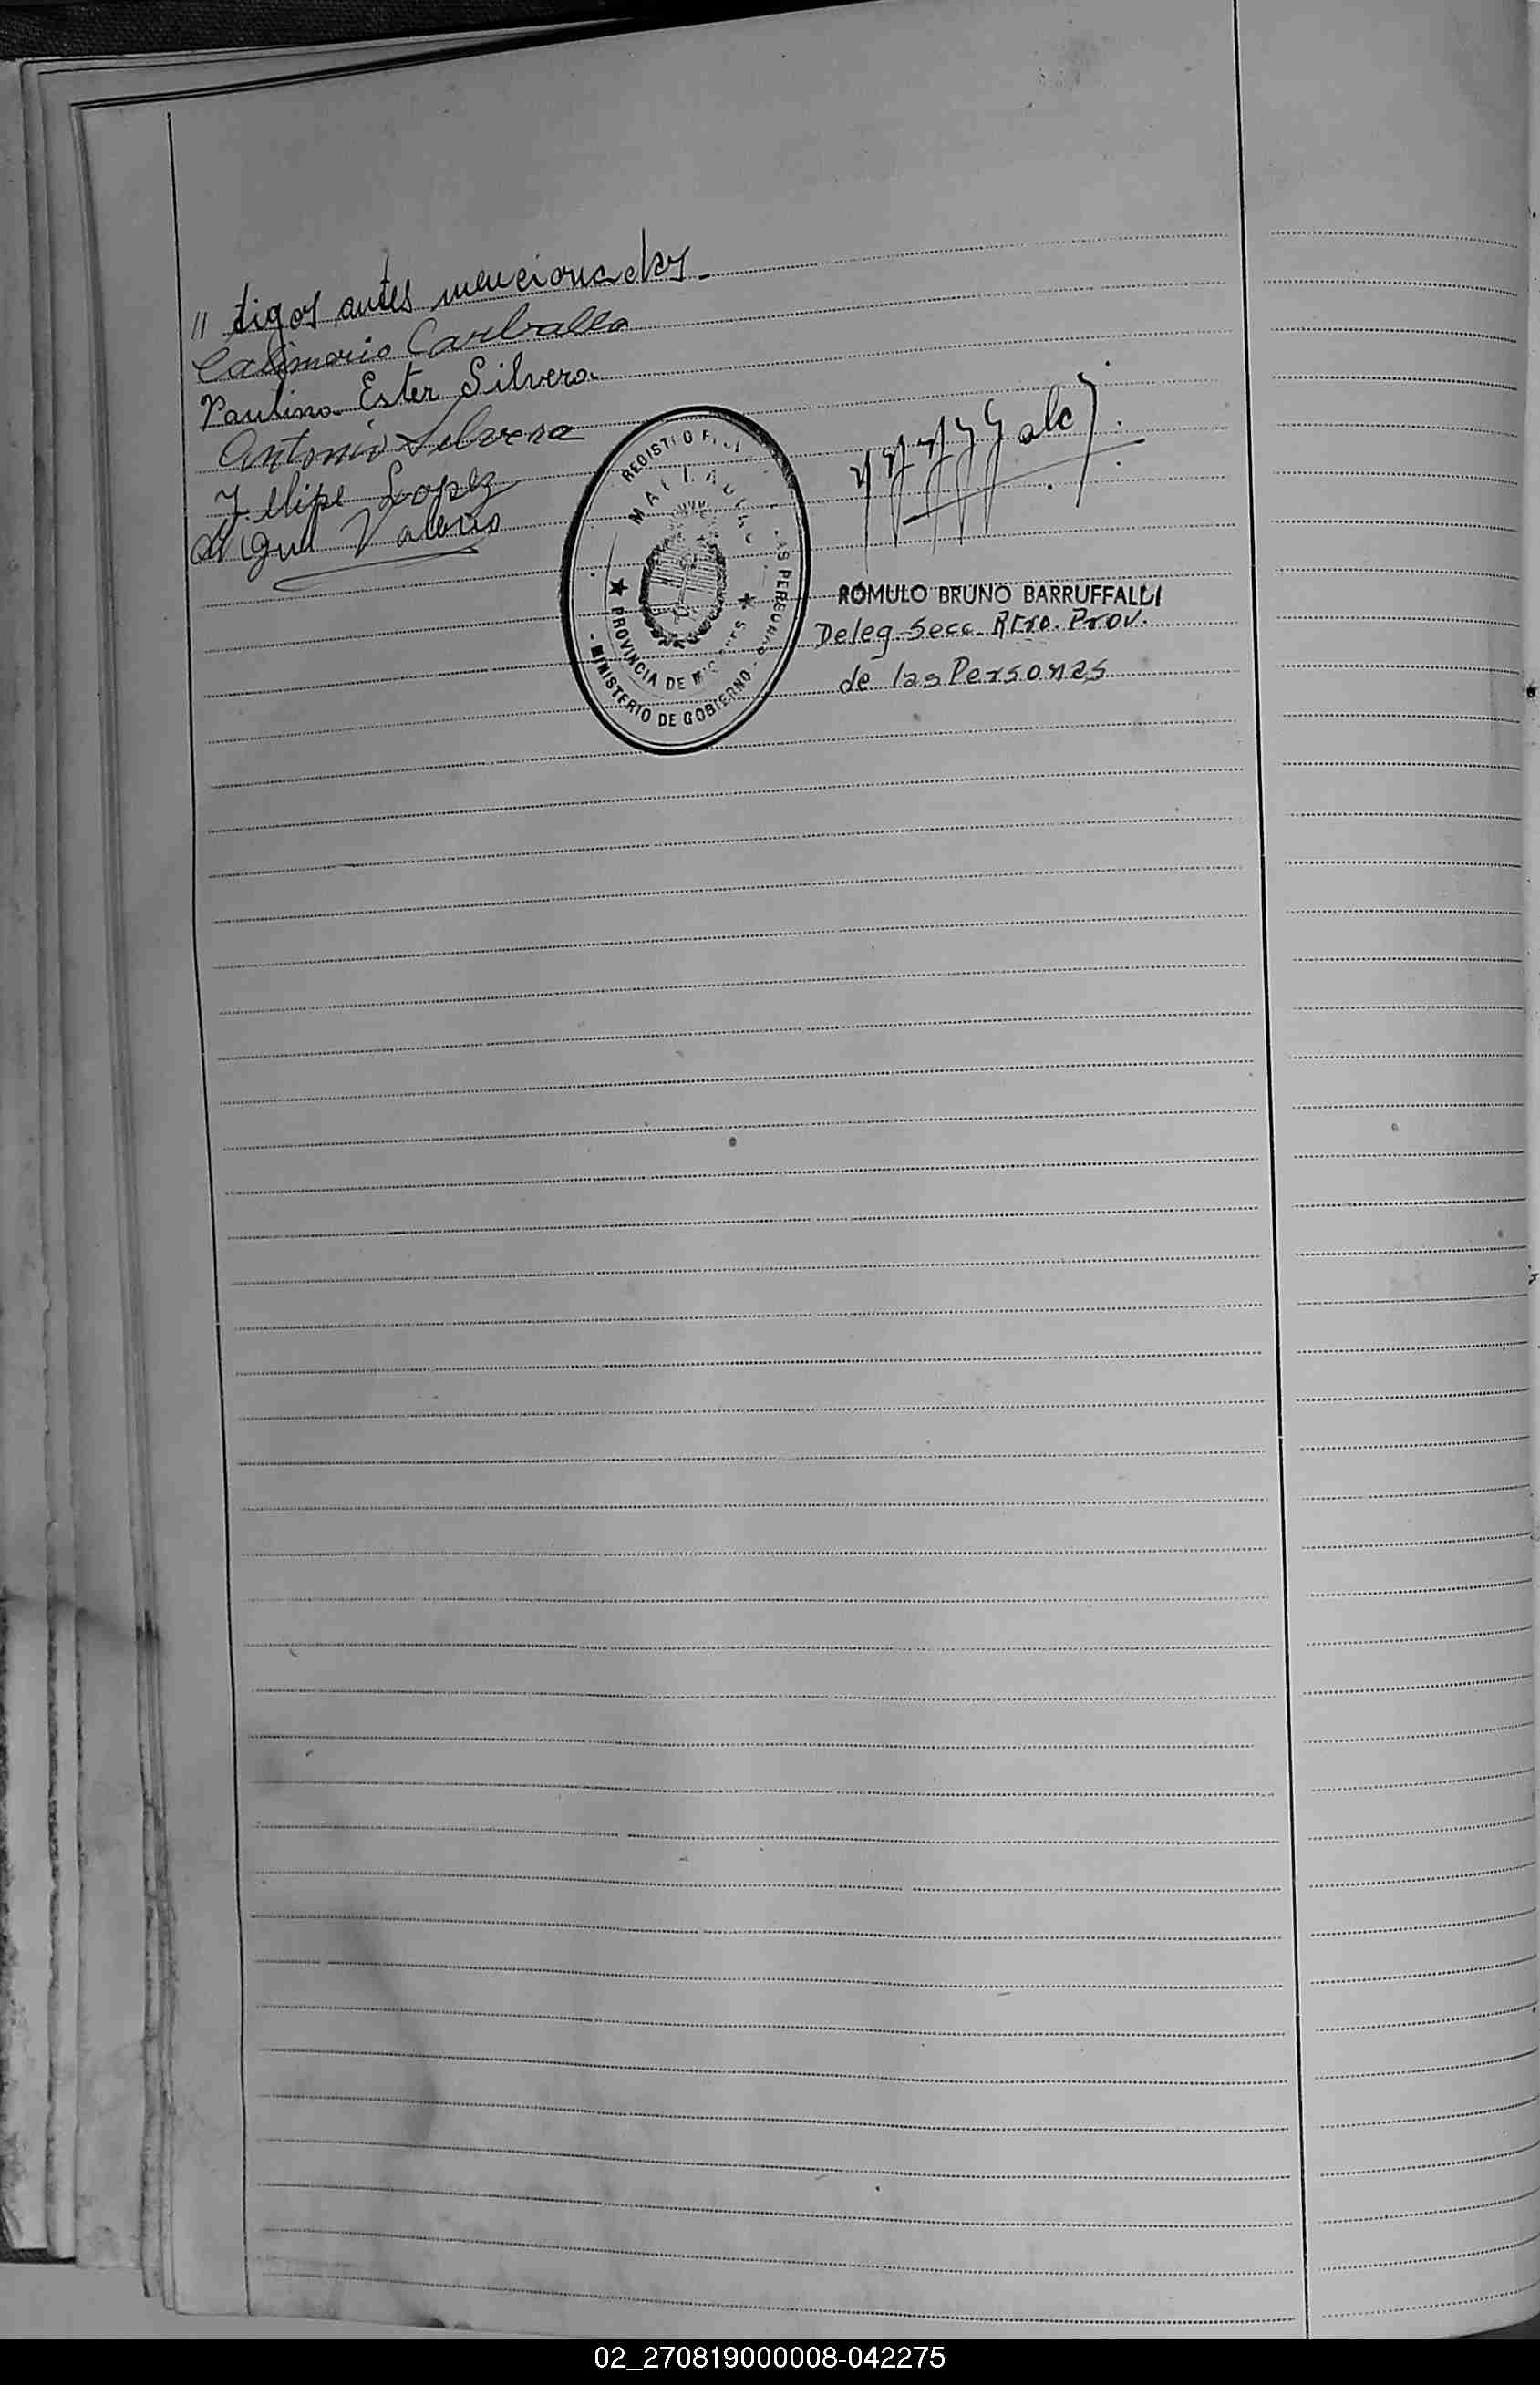 // tigos antes mencionados.-
Casimorio Carballo
Paulina Ester Silvera
Antonio Silvera
Felipe Lopez
Miguel Valerio
REGISTRO PROV. LAS PERSONAS
PROVINCIA DE MISIONES
- MINISTERIO DE GOBIERNO -
ROMULO BRUNO BARRUFFALDI
Deleg. Secc. Rtro. Prov.
de las Personas
02_270819000008-042275